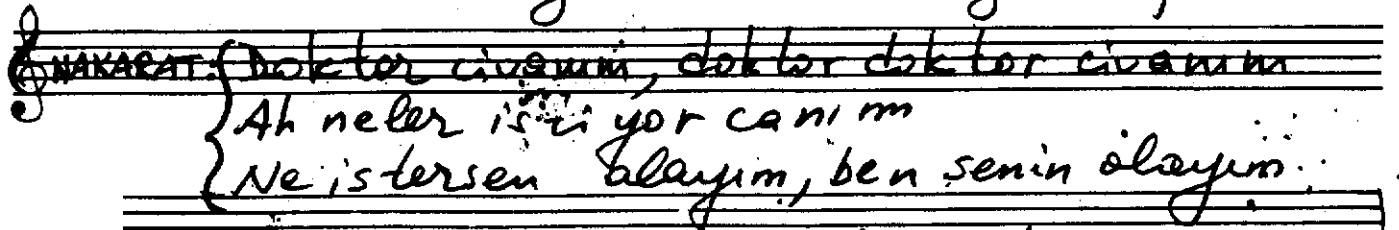 NAKARAT: Doktor civanım, doktor doktor civanım
Ah neler istiyor canım
Ne istersen alayım, ben senin olayım.